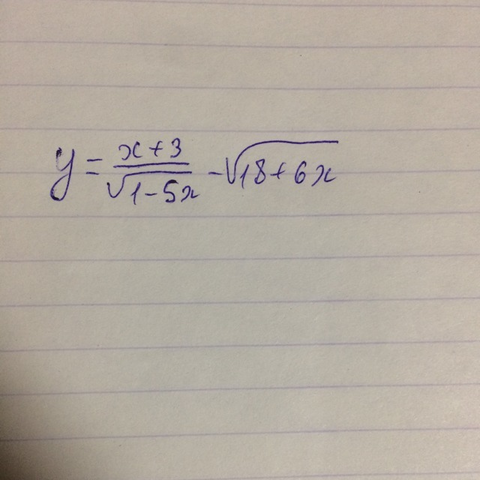 y = \frac{x+3}{\sqrt{1-5x}} - \sqrt{18+6x}